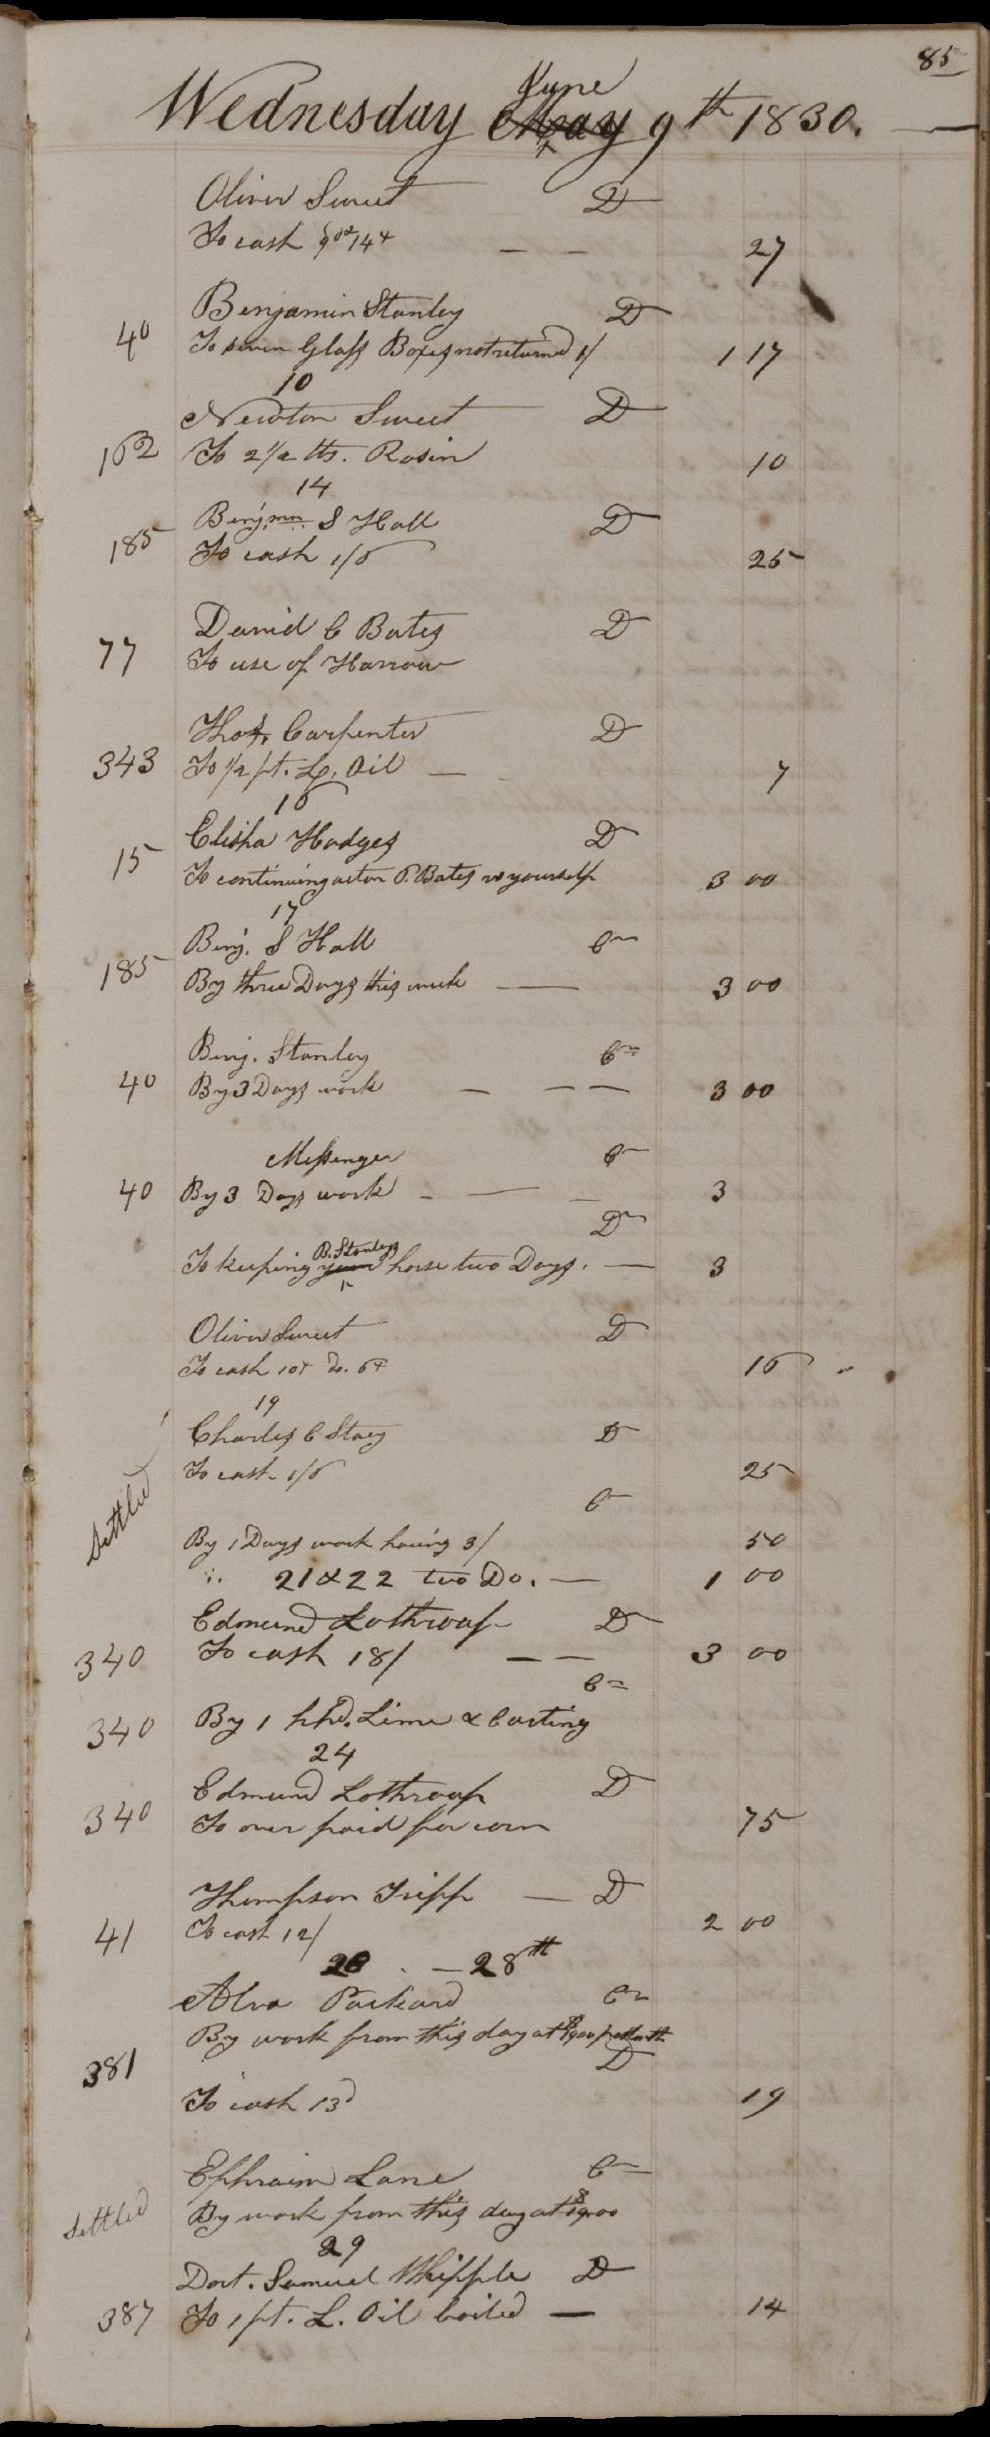 85
June
Wednesday May 9th 1830.
Oliver Sweet D
To cash 9cd 14+ 27
Benjamin Stanley D
40 To seven Glass Boxes not returned 1/ 1 17
10
Newton Sweet D
162 To 2 1/2 lb. Rosin 10
14
Benjmn S Hall D
185 To cash 1/6 25
David C Bates D
77 To use of Harrow
Thos. Carpenter D
343 To 1/2 pt. L. Oil 7
16
Elisha Hodges D
15 To continuing action P. Bates vs yourself 3 00
17
Benj. S Hall Cr
185 By three Days this week 3 00
Benj. Stanley Cr
40 By 3 Days work 3 00
Messenger Cr
40 By 3 Days work 3
Dr
B. Stanleys
To keeping your horse two Days. 3
Oliver Sweet D
To cash 10+ Do. 6+ 16
19
Charles C Stacy D
Settled To cash 1/6 25
C
By 1 Days work hoeing 3/ 50
" 21 & 22 two Do. 1 00
Edmund Lothroop D
340 To cash 18/ 3 00
Cr
340 By 1 hhd. Lime & Carting
24
Edmund Lothroop D
340 To over paid for corn 75
Thompson Tripp D
41 To cash 12/ 2 00
28 28th
Alva Packard Cr
By work from this day at $9.00 pr Month
381 D
To cash 13d 19
Ephraim Lane Cr
Settled By work from this day at $9.00
29
Doct. Samuel Whipple D
387 To 1 pt. L. Oil boiled 14